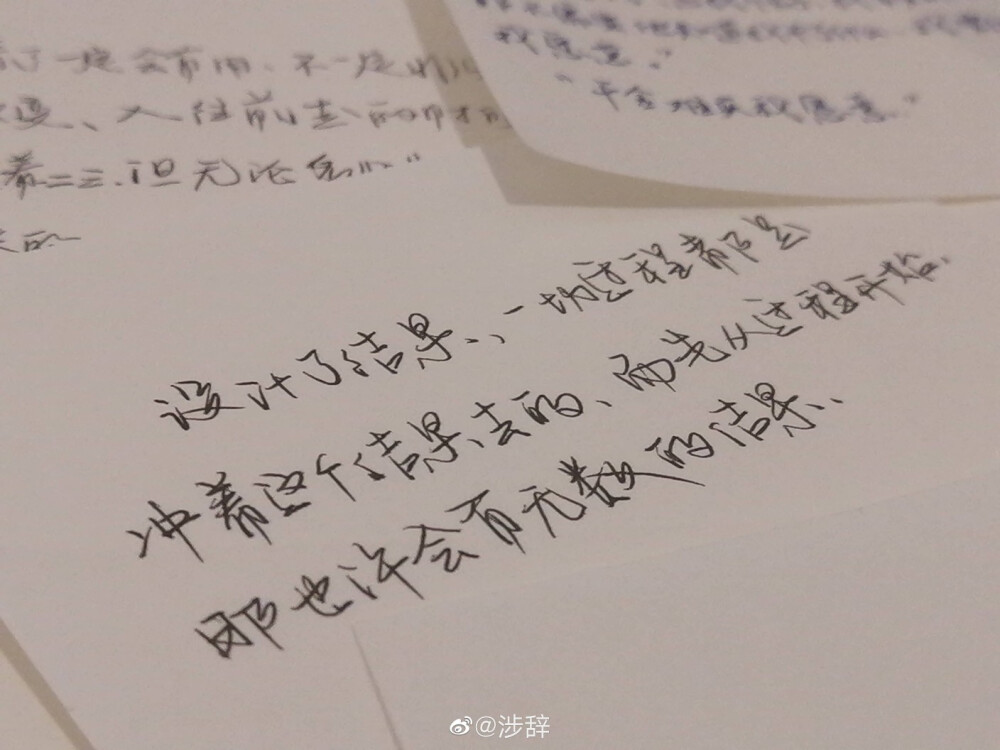 了一定会有用、不一定
人往前走的时
着二三.但无论怎
我愿意。”
“千金难买我愿意。”
设计了结果、,一切过程都是
冲着这个结果去的、而先从过程开始.
那也许会有无数的结果、
@涉辞